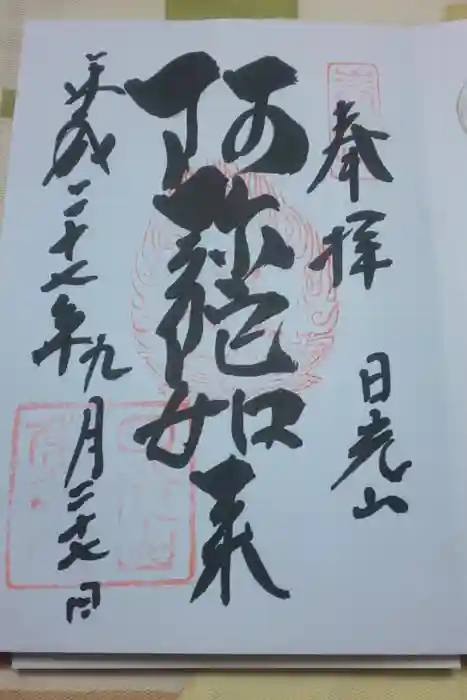 奉拝
日光山
阿弥陀如来
平成二十七年九月二十七日